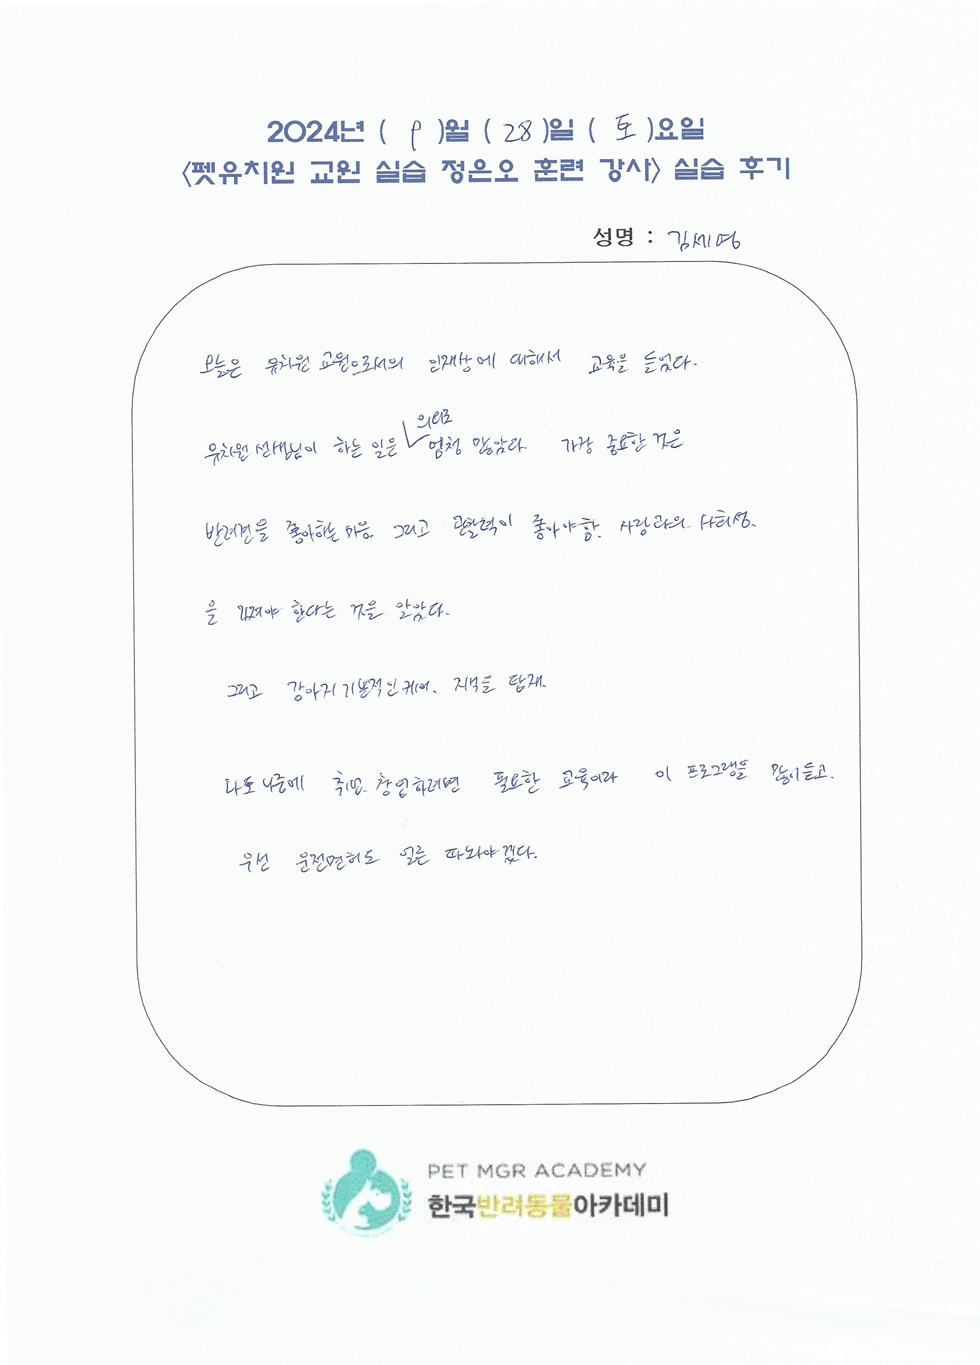 2024년 ( 9 )월 ( 28 )일 ( 토 )요일
<펫유치원 교원 실습 정은오 훈련 강사> 실습 후기
성명 : 김세영
오늘은 유치원 교원으로서의 인재상에 대해서 교육을 들었다.
의외로
유치원 선생님이 하는 일은 엄청 많았다. 가장 중요한 것은
반려견을 좋아하는 마음. 그리고 관찰력이 좋아야함. 사람과의 사회성.
을 가져야 한다는 것을 알았다.
그리고 강아지 기본적인 케어. 지식을 탑재.
나도 나중에 취업. 창업하려면 필요한 교육이라 이 프로그램을 많이 듣고.
우선 운전면허도 얼른 따놔야겠다.
PET MGR ACADEMY
한국반려동물아카데미